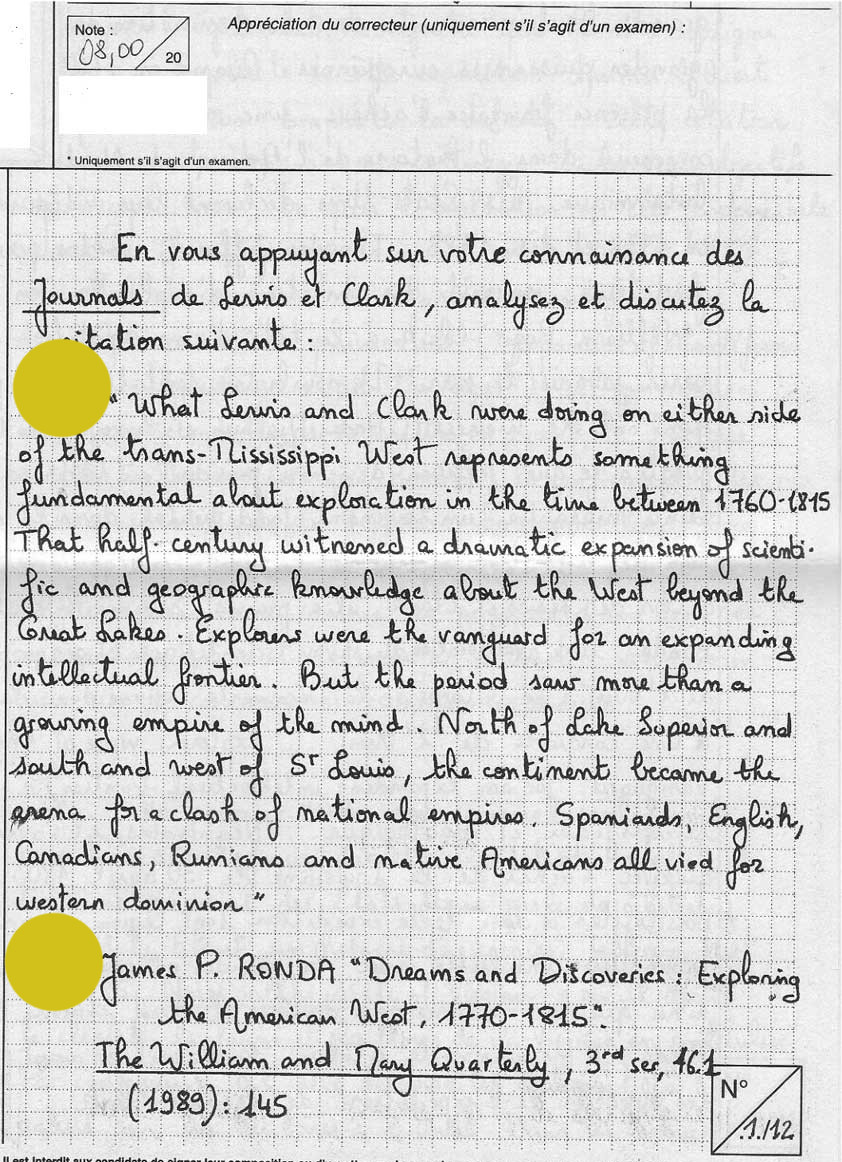 Note :
08,00
20
Appréciation du correcteur (uniquement s'il s'agit d'un examen) :
* Uniquement s'il s'agit d'un examen.
En vous appuyant sur votre connaissance des
Journals de Lewis et Clark, analysez et discutez la
itation suivante :
" What Lewis and Clark were doing on either side
of the trans-Mississippi West represents something
fundamental about exploration in the time between 1760-1815
That half-century witnessed a dramatic expansion of scienti-
fic and geographic knowledge about the West beyond the
Great Lakes. Explorers were the vanguard for an expanding
intellectual frontier. But the period saw more than a
growing empire of the mind. North of Lake Superior and
south and west of St Louis, the continent became the
arena for a clash of national empires. Spaniards, English,
Canadians, Russians and native Americans all vied for
western dominion "
James P. RONDA "Dreams and Discoveries : Exploring
the American West, 1770-1815".
The William and Mary Quarterly, 3rd ser, 46.1
(1989) : 145
N°
1/12
Il est interdit aux candidats de signer leur composition ou